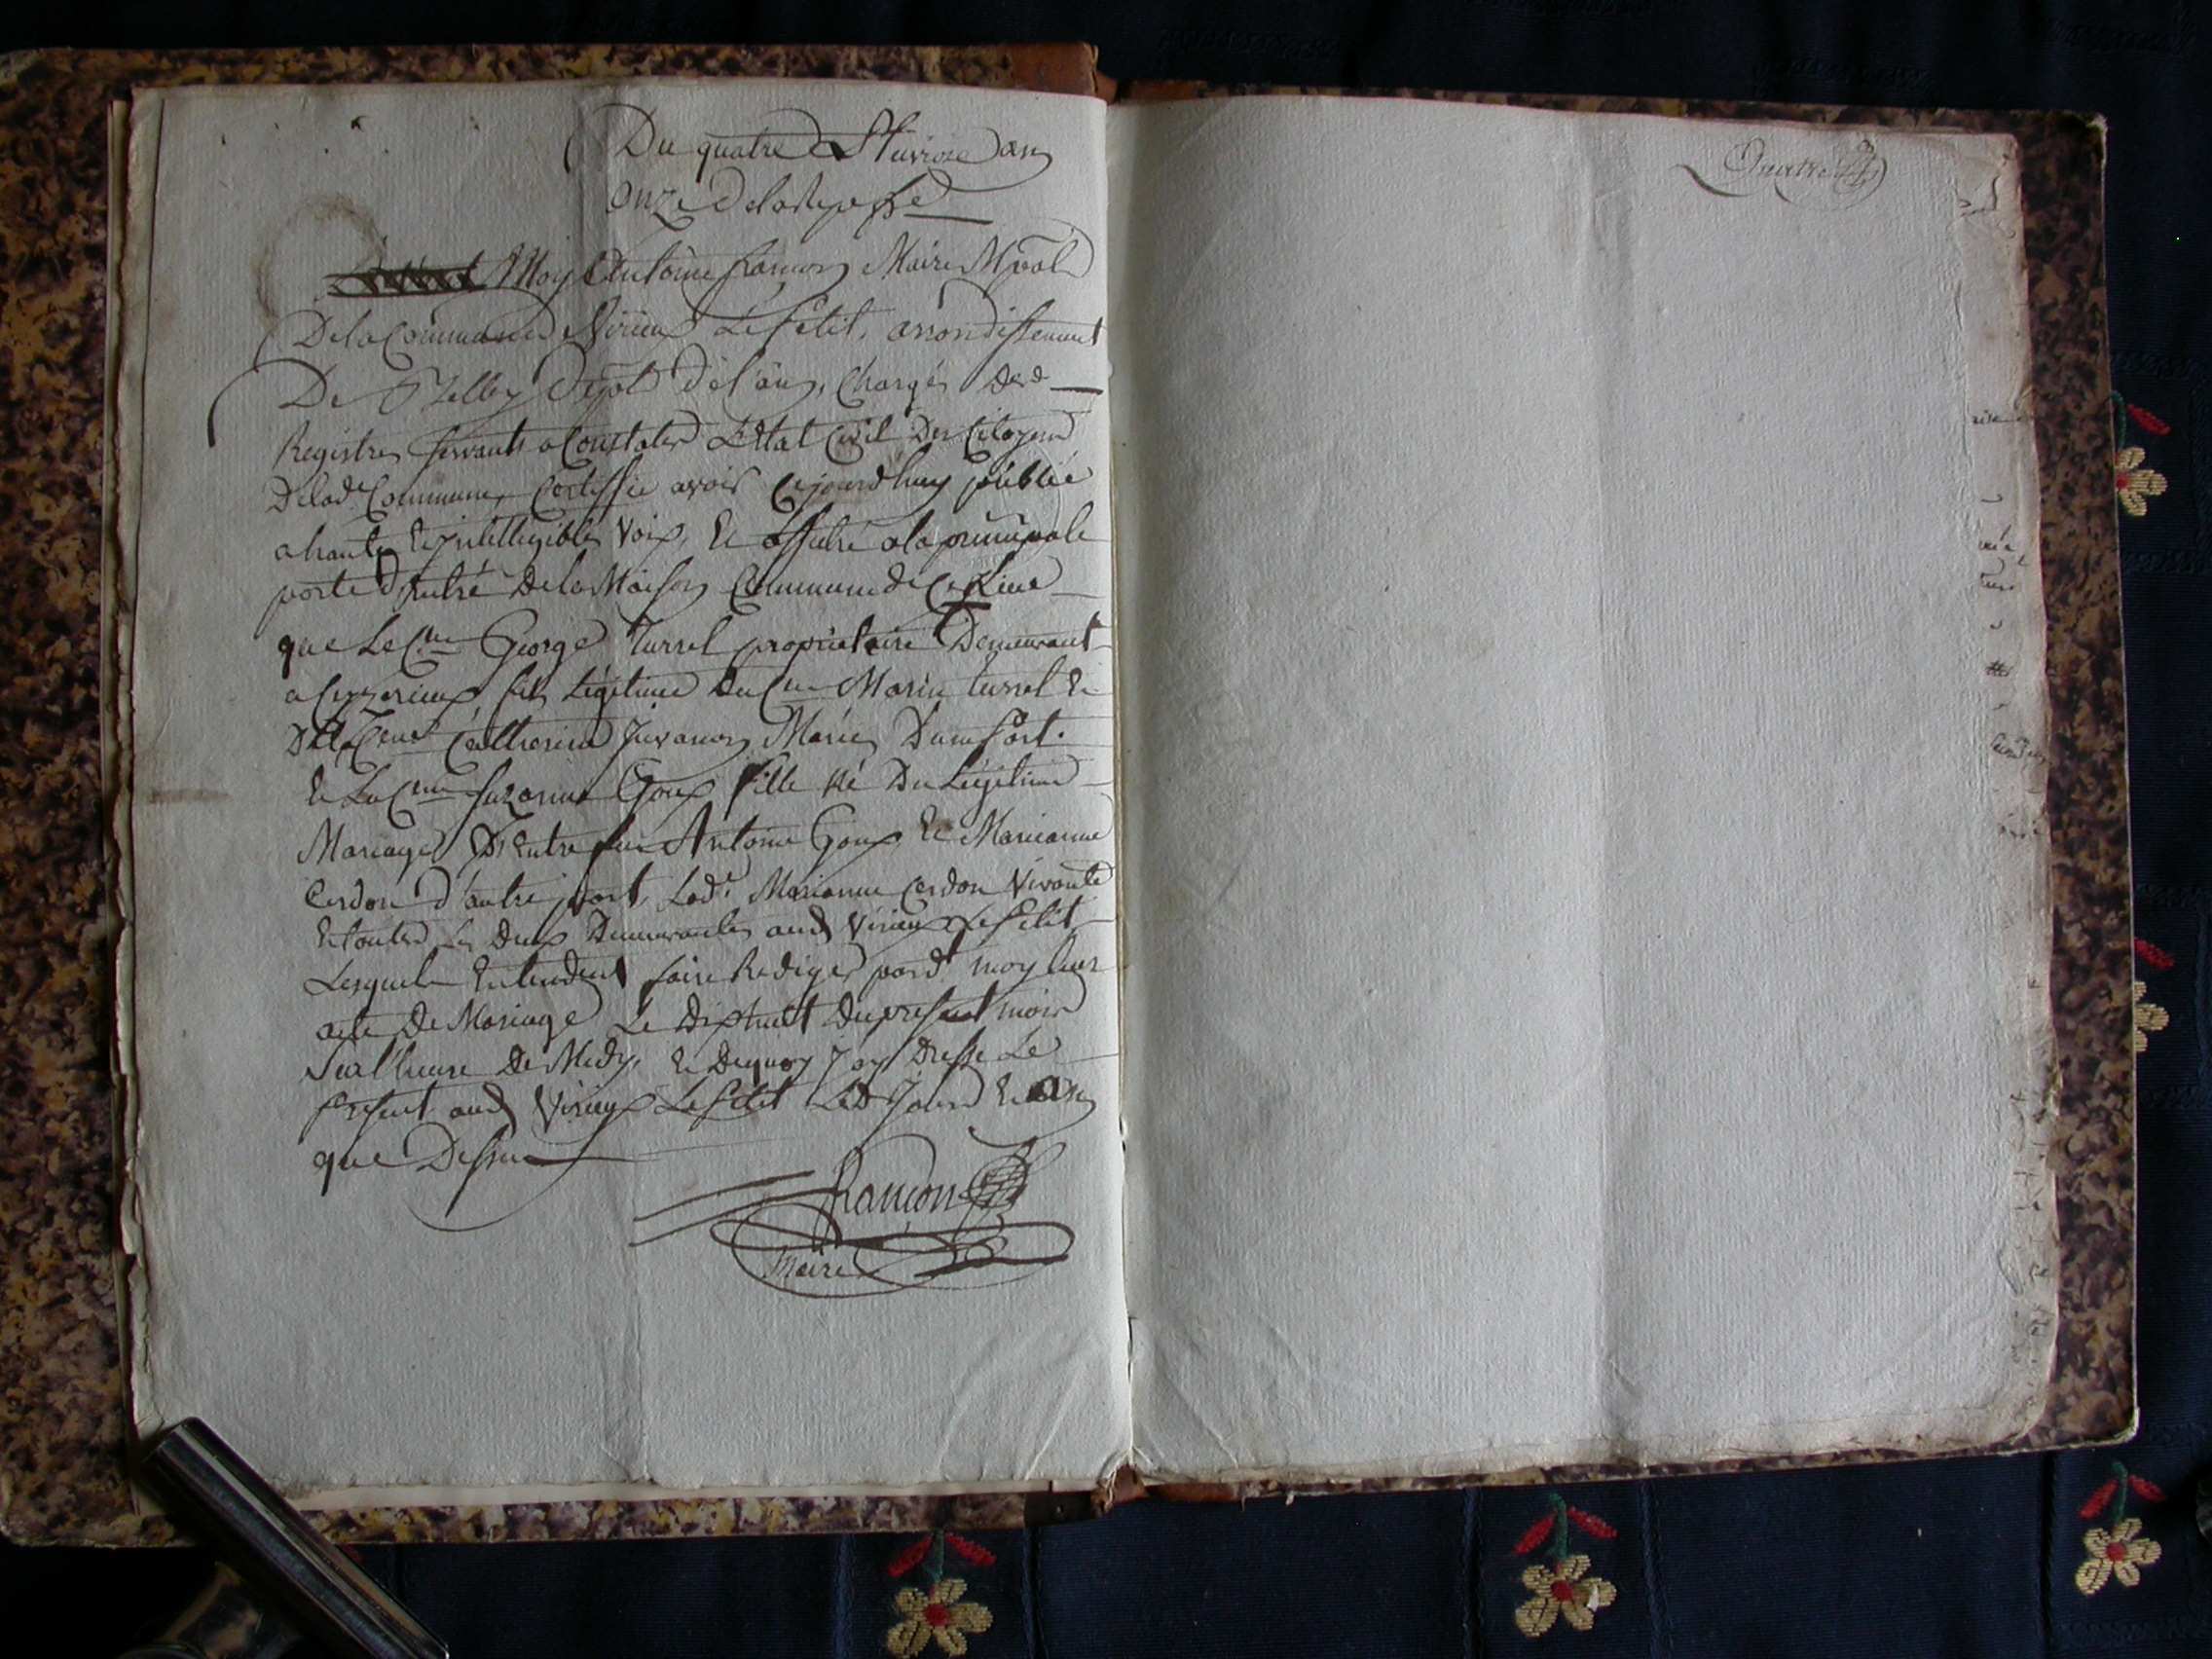 Du quatre Pluviose an
onze de la Rep. f.se
Moy Antoine françon Maire M.pal
De la Commune de Virieux Le Petit, arrondissement
De Belley Dépt de l'ain, chargé des
Registres servants a Constater L'Etat Civil Des Citoyens
De lad.e Commune, Certiffie avoir Cejourd'huy publié
a haute & intelligible Voix, Et affiché a la principale
porte d'Entré De la Maison Commune de Ce Lieu
que Le C.en George turrel propriétaire Demeurant
a fils Légitime Du C.en Marin turrel Et
De la C.enne Catherine Juvanon Mariés D'une part.
Et La C.enne Suzanne Goux fille né Du Légitime
Mariage D'Entre feu Antoine Goux Et Marianne
Cerdon d'autre part, Lad.e Marianne Cerdon Vivante
Et toutes Les Deux Demeurantes aud Virieux Le Petit
Lesquels Entendent faire Rediger pard.t moy leur
acte De Mariage Le Dixhuit Du présent mois
Sur l'heure De Midy, Et Dequoy J'ay Dressé Le
Présent aud Virieux Le Petit Led Jour Et an
que Dessus
françon
Maire
Quatre